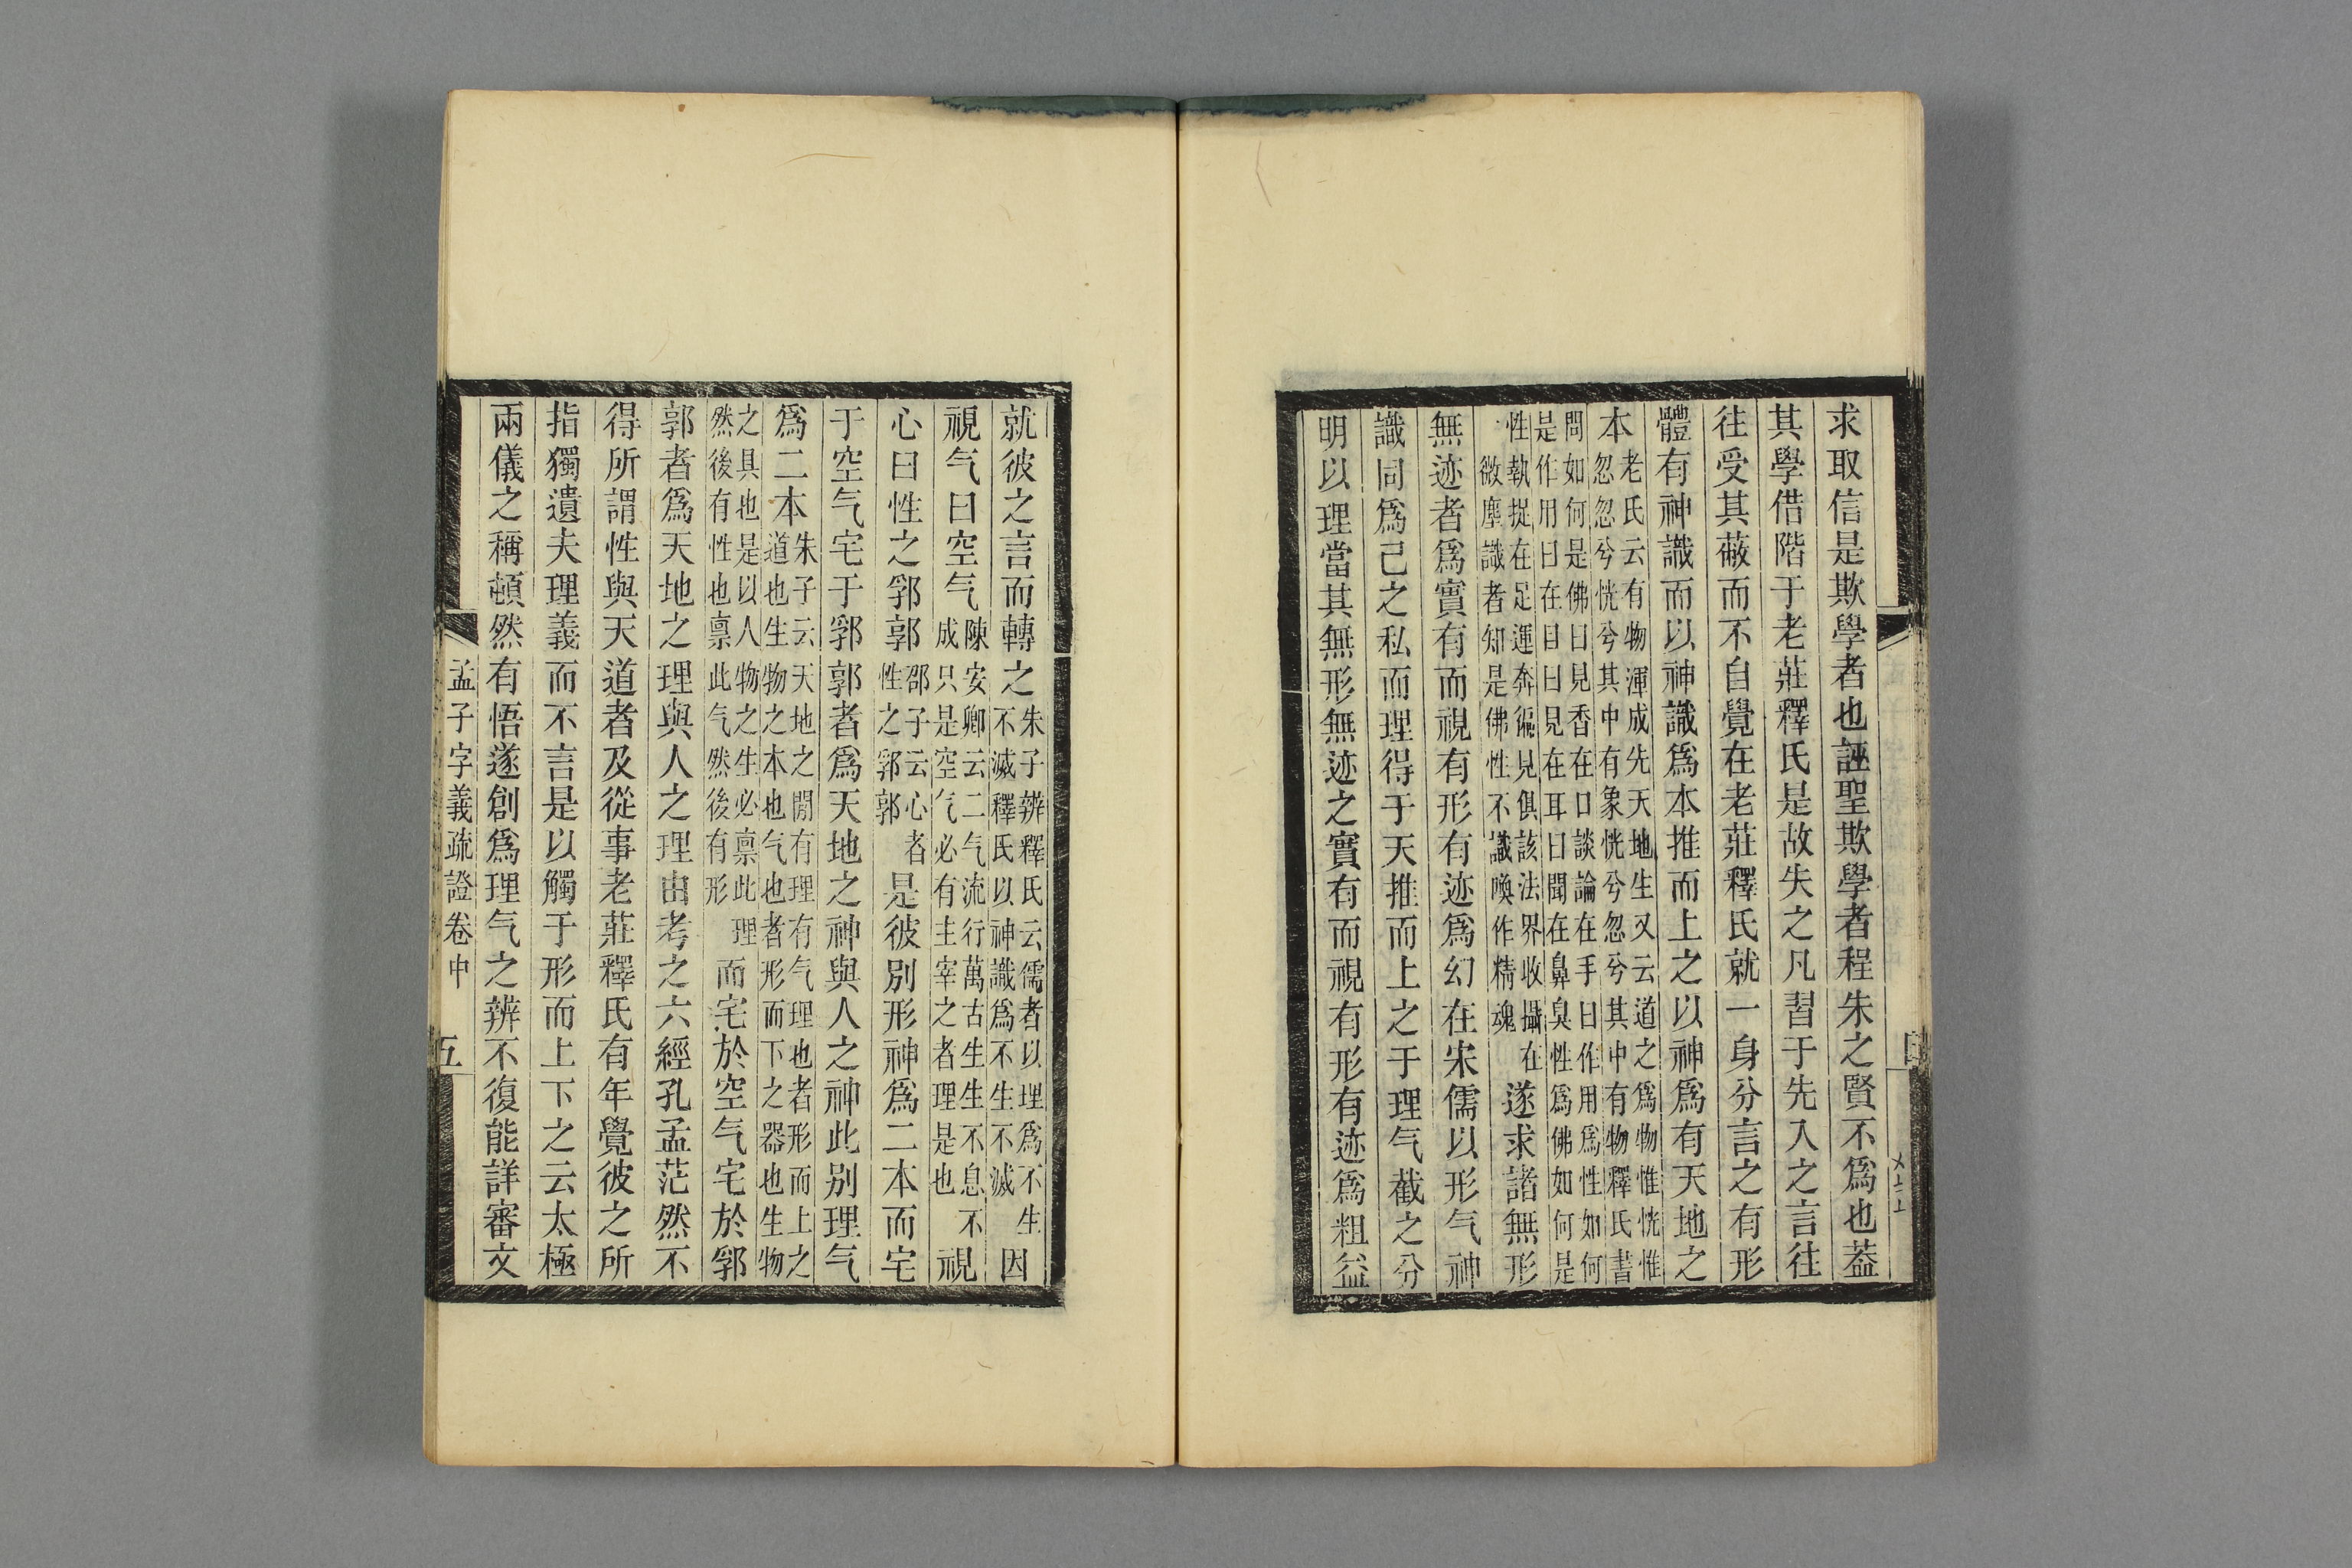 求取信是欺學者也誣聖欺學者程朱之賢不爲也葢
其學借階于老莊釋氏是故失之凡習于先入之言往
往受其蔽而不自覺在老莊釋氏就一身分言之有形
體有神識而以神識爲本推而上之以神爲有天地之
本
老氏云有物渾成先天地生又云道之爲物惟恍惟
忽忽兮恍兮其中有象恍兮忽兮其中有物釋氏書
問如何是佛曰見香在口談論在手曰作用爲性如何
是作用曰在目曰見在耳曰聞在鼻臭性爲佛如何是
性執捉在足運奔徧見俱該法界收攝在
微塵識者知是佛性不識喚作精魂
遂求諸無形
無迹者爲實有而視有形有迹爲幻在宋儒以形气神
識同爲己之私而理得于天推而上之于理气截之分
明以理當其無形無迹之實有而視有形有迹爲粗益
就彼之言而轉之
朱子辨釋氏云儒者以理爲不生
不滅釋氏以神識爲不生不滅
因
視气曰空气
陳安卿云二气流行萬古生生不息不
成只是空气必有主宰之者理是也
視
心曰性之郛郭
邵子云心者
性之郛郭
是彼別形神爲二本而宅
于空气宅于郛郭者爲天地之神與人之神此别理气
爲二本
朱子云天地之閒有理有气理也者形而上之
道也生物之本也气也者形而下之器也生物
之具也是以人物之生必禀此理
然後有性也禀此气然後有形
而宅於空气宅於郛
郭者爲天地之理與人之理由考之六經孔孟茫然不
得所謂性與天道者及從事老莊釋氏有年覺彼之所
指獨遺夫理義而不言是以觸于形而上下之云太極
兩儀之稱頓然有悟遂創爲理气之辨不復能詳審文
孟子字義疏證卷中
五